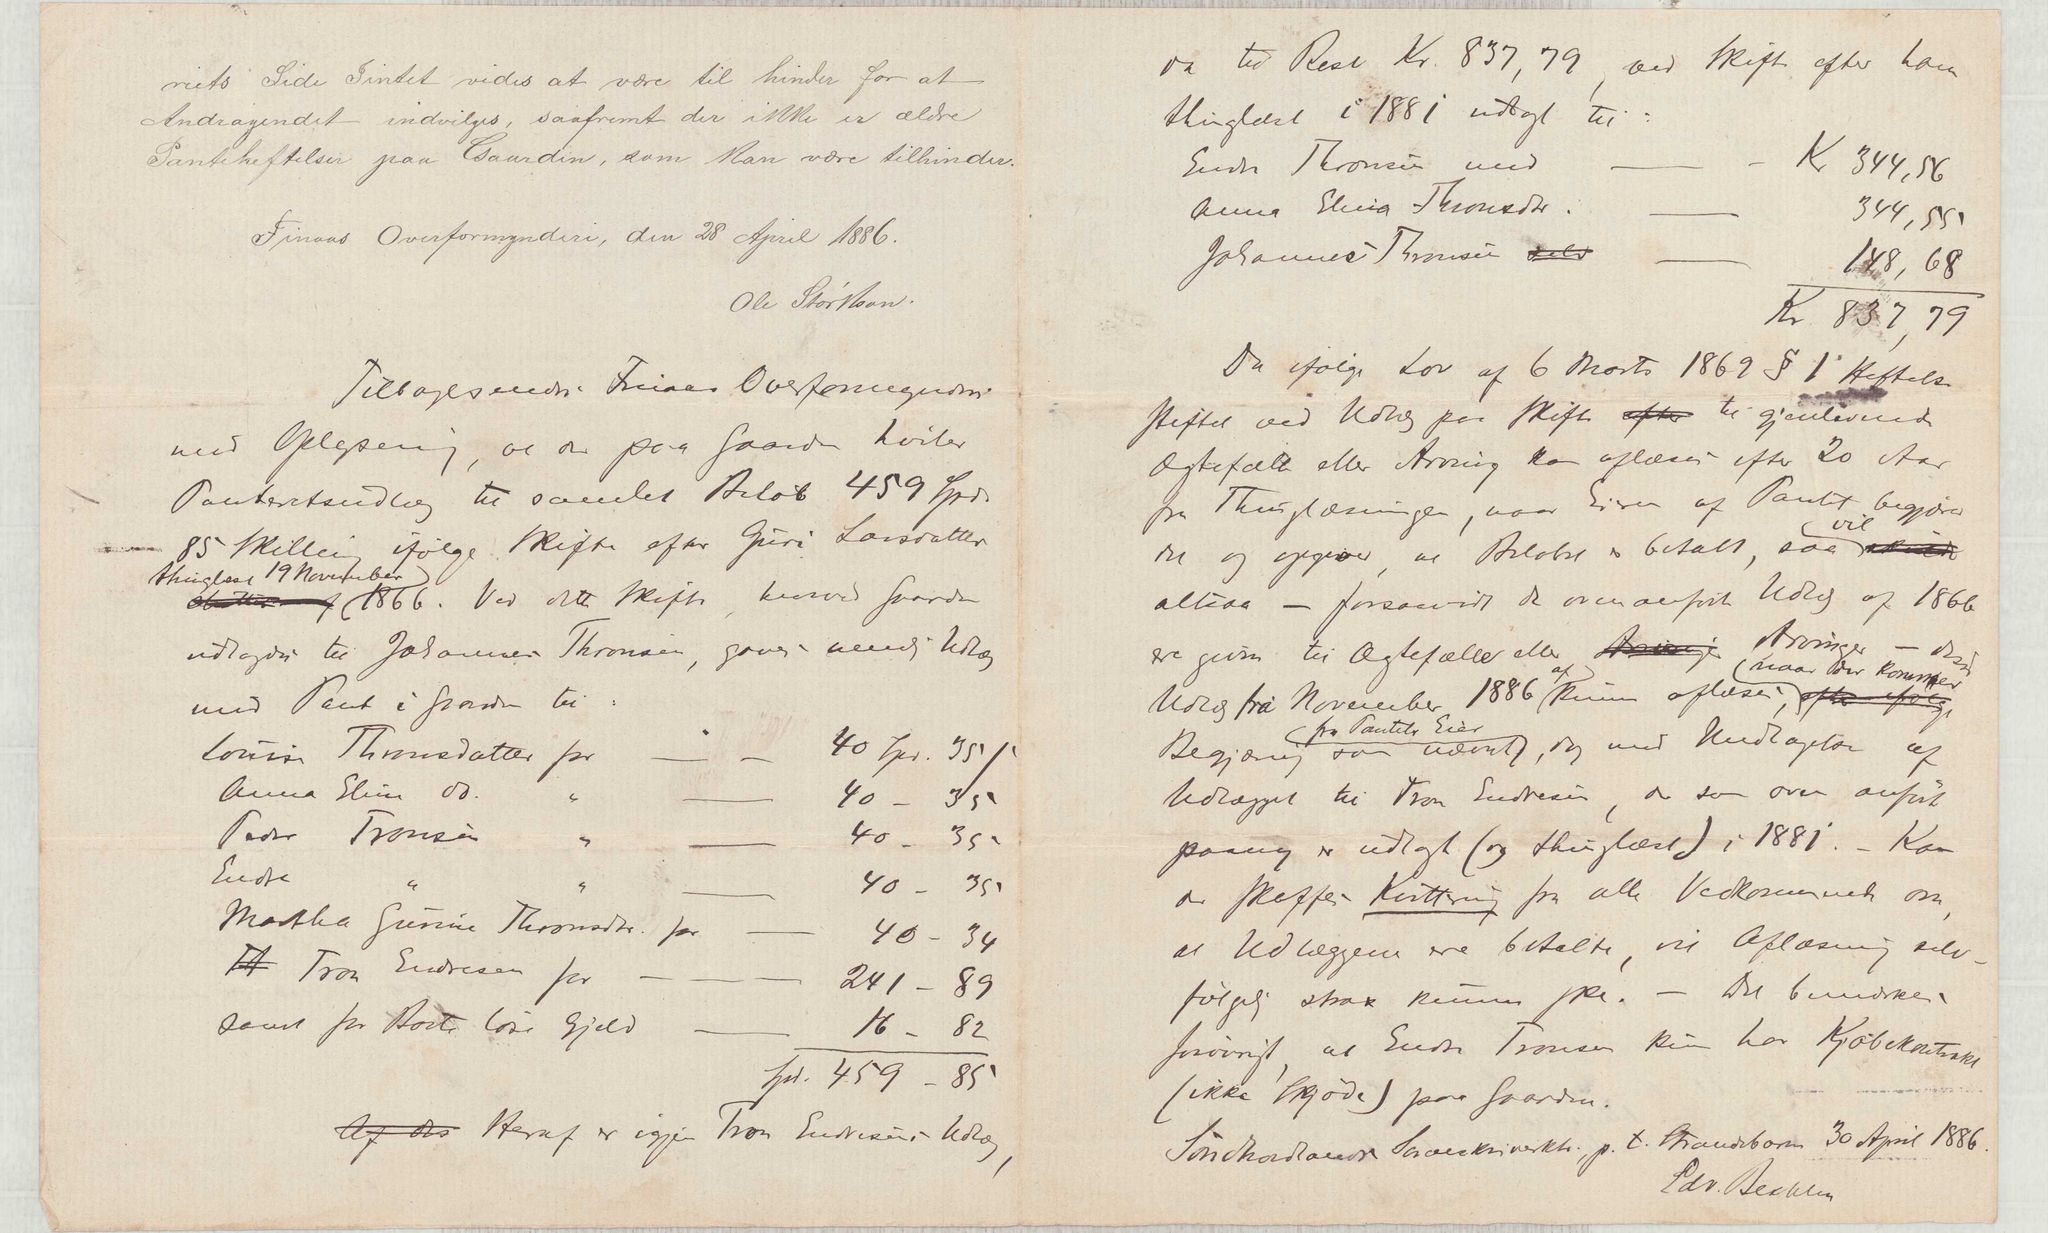 riets Side Intet vides at være til hinder for at
Andragendet indvilges, saafremt der ikke er ældre
Panteheftelser paa Gaarden, som kan være tilhinder.
Finaas Overformynderi, den 28 April 1886.
Ole Størkson.
Tilbagesendes Finaas Overformynderi
med Oplysning, at der paa Gaarden hviler
Panteretsudlæg til samlet Beløb 459 Spd.
85 Skilling ifølge Skifte efter Guri Larsdatter
thinglæst 19 November
1866. Ved dette Skifte, hvorved Gaarden
udlagdes til Johannes Thronsen, gaves nemlig Udlæg
med Pant i Gaarden til:
Lovise Thronsdatter for — - 40 Spd. 35 /
Anna Elina do. " — 40 - 35
Peder Tronsen " — 40 - 35
Endre " " — 40 - 35
Martha Gurine Thronsdtr. for — 40 - 34
Tron Endresen for — 241 - 89
samt for Boets løse Gjeld — 16 - 82
Spd. 459 - 85
Af des Heraf er igjen Tron Endresens Udlæg,
da til Rest Kr. 837,79, ved Skifte efter ham
thinglæst i 1881 udlagt til:
Endre Thronsen med — - Kr 344,56
Anna Elina Thronsdtr. — 344,55
Johannes Thronsen selv — 148,68
Kr 837,79
Da ifølge Lov af 6 Marts 1869 § 1 Heftelse
stiftet ved Udlæg paa Skifte efter til gjenlevende
Ægtefælle eller Arving kan aflæses efter 20 Aar
fra Thinglæsningen, naar Eieren af Pantet begjærer
det og opgiver, at Beløbet er betalt, saa vil skulde
altsaa — forsaavidt de ovenanførte Udlæg af 1866
ere givne til Ægtefælle eller Arvinger Arvinger — disse
Udlæg fra November 1886 af kunne aflæses, naar der kommer efter ifølge
Begjæring fra Pantets Eier som nævnt, dog med Undtagelse af
Udlægget til Tron Endresen, der som oven anført
paany er udlagt (og thinglæst) i 1881. — Kan
der skaffes Kvittering fra alle Vedkommende om,
at Udlæggene ere betalte, vil Aflæsning selv-
følgelig strax kunne ske. — Det bemærkes
forøvrigt, at Endre Tronsen kun har Kjøbekontrakt
(ikke Skjøde) paa Gaarden.
Søndhordlands Sorenskriverktr., p. t. Strandebarm 30 April 1886.
Edv.